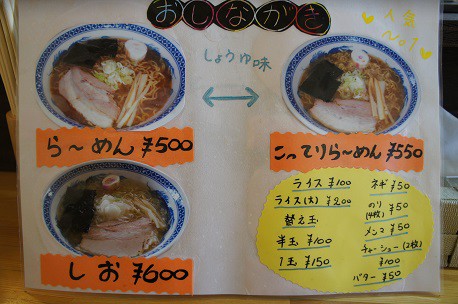 おしながき
人気
No.1
しょうゆ味
ら〜めん ¥500
こってりら〜めん ¥550
しお ¥600
ライス ¥100
ライス(大) ¥200
替え玉
半玉 ¥100
1玉 ¥150
ネギ ¥50
のり(4枚) ¥50
メンマ ¥50
チャーシュー(2枚)
¥100
バター ¥50